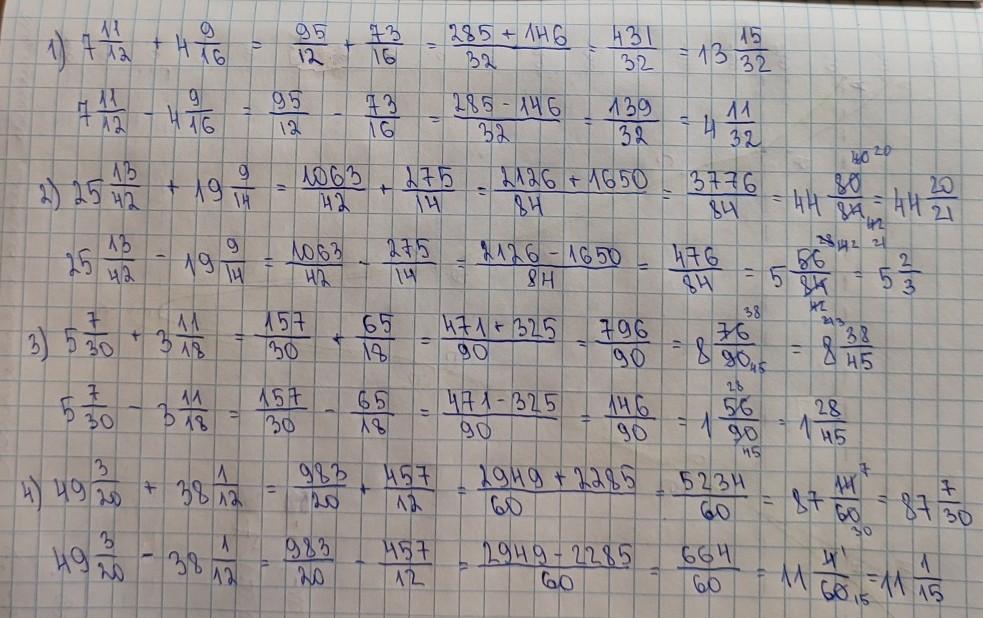 1) 7 11/12 + 4 9/16 = 95/12 + 73/16 = (285 + 146)/32 = 431/32 = 13 15/32
7 11/12 - 4 9/16 = 95/12 - 73/16 = (285 - 146)/32 = 139/32 = 4 11/32
2) 25 13/42 + 19 9/14 = 1063/42 + 275/14 = (2126 + 1650)/84 = 3776/84 = 44 80/84 40 20 42 = 44 20/21
25 13/42 - 19 9/14 = 1063/42 - 275/14 = (2126 - 1650)/84 = 476/84 = 5 56/84 28 42 = 5 2/3
3) 5 7/30 + 3 11/18 = 157/30 + 65/18 = (471 + 325)/90 = 796/90 = 8 76/90 38 45 = 8 38/45
5 7/30 - 3 11/18 = 157/30 - 65/18 = (471 - 325)/90 = 146/90 = 1 56/90 28 45 = 1 28/45
4) 49 3/20 + 38 1/12 = 983/20 + 457/12 = (2949 + 2285)/60 = 5234/60 = 87 14/60 7 30 = 87 7/30
49 3/20 - 38 1/12 = 983/20 - 457/12 = (2949 - 2285)/60 = 664/60 = 11 4/60 1 15 = 11 1/15